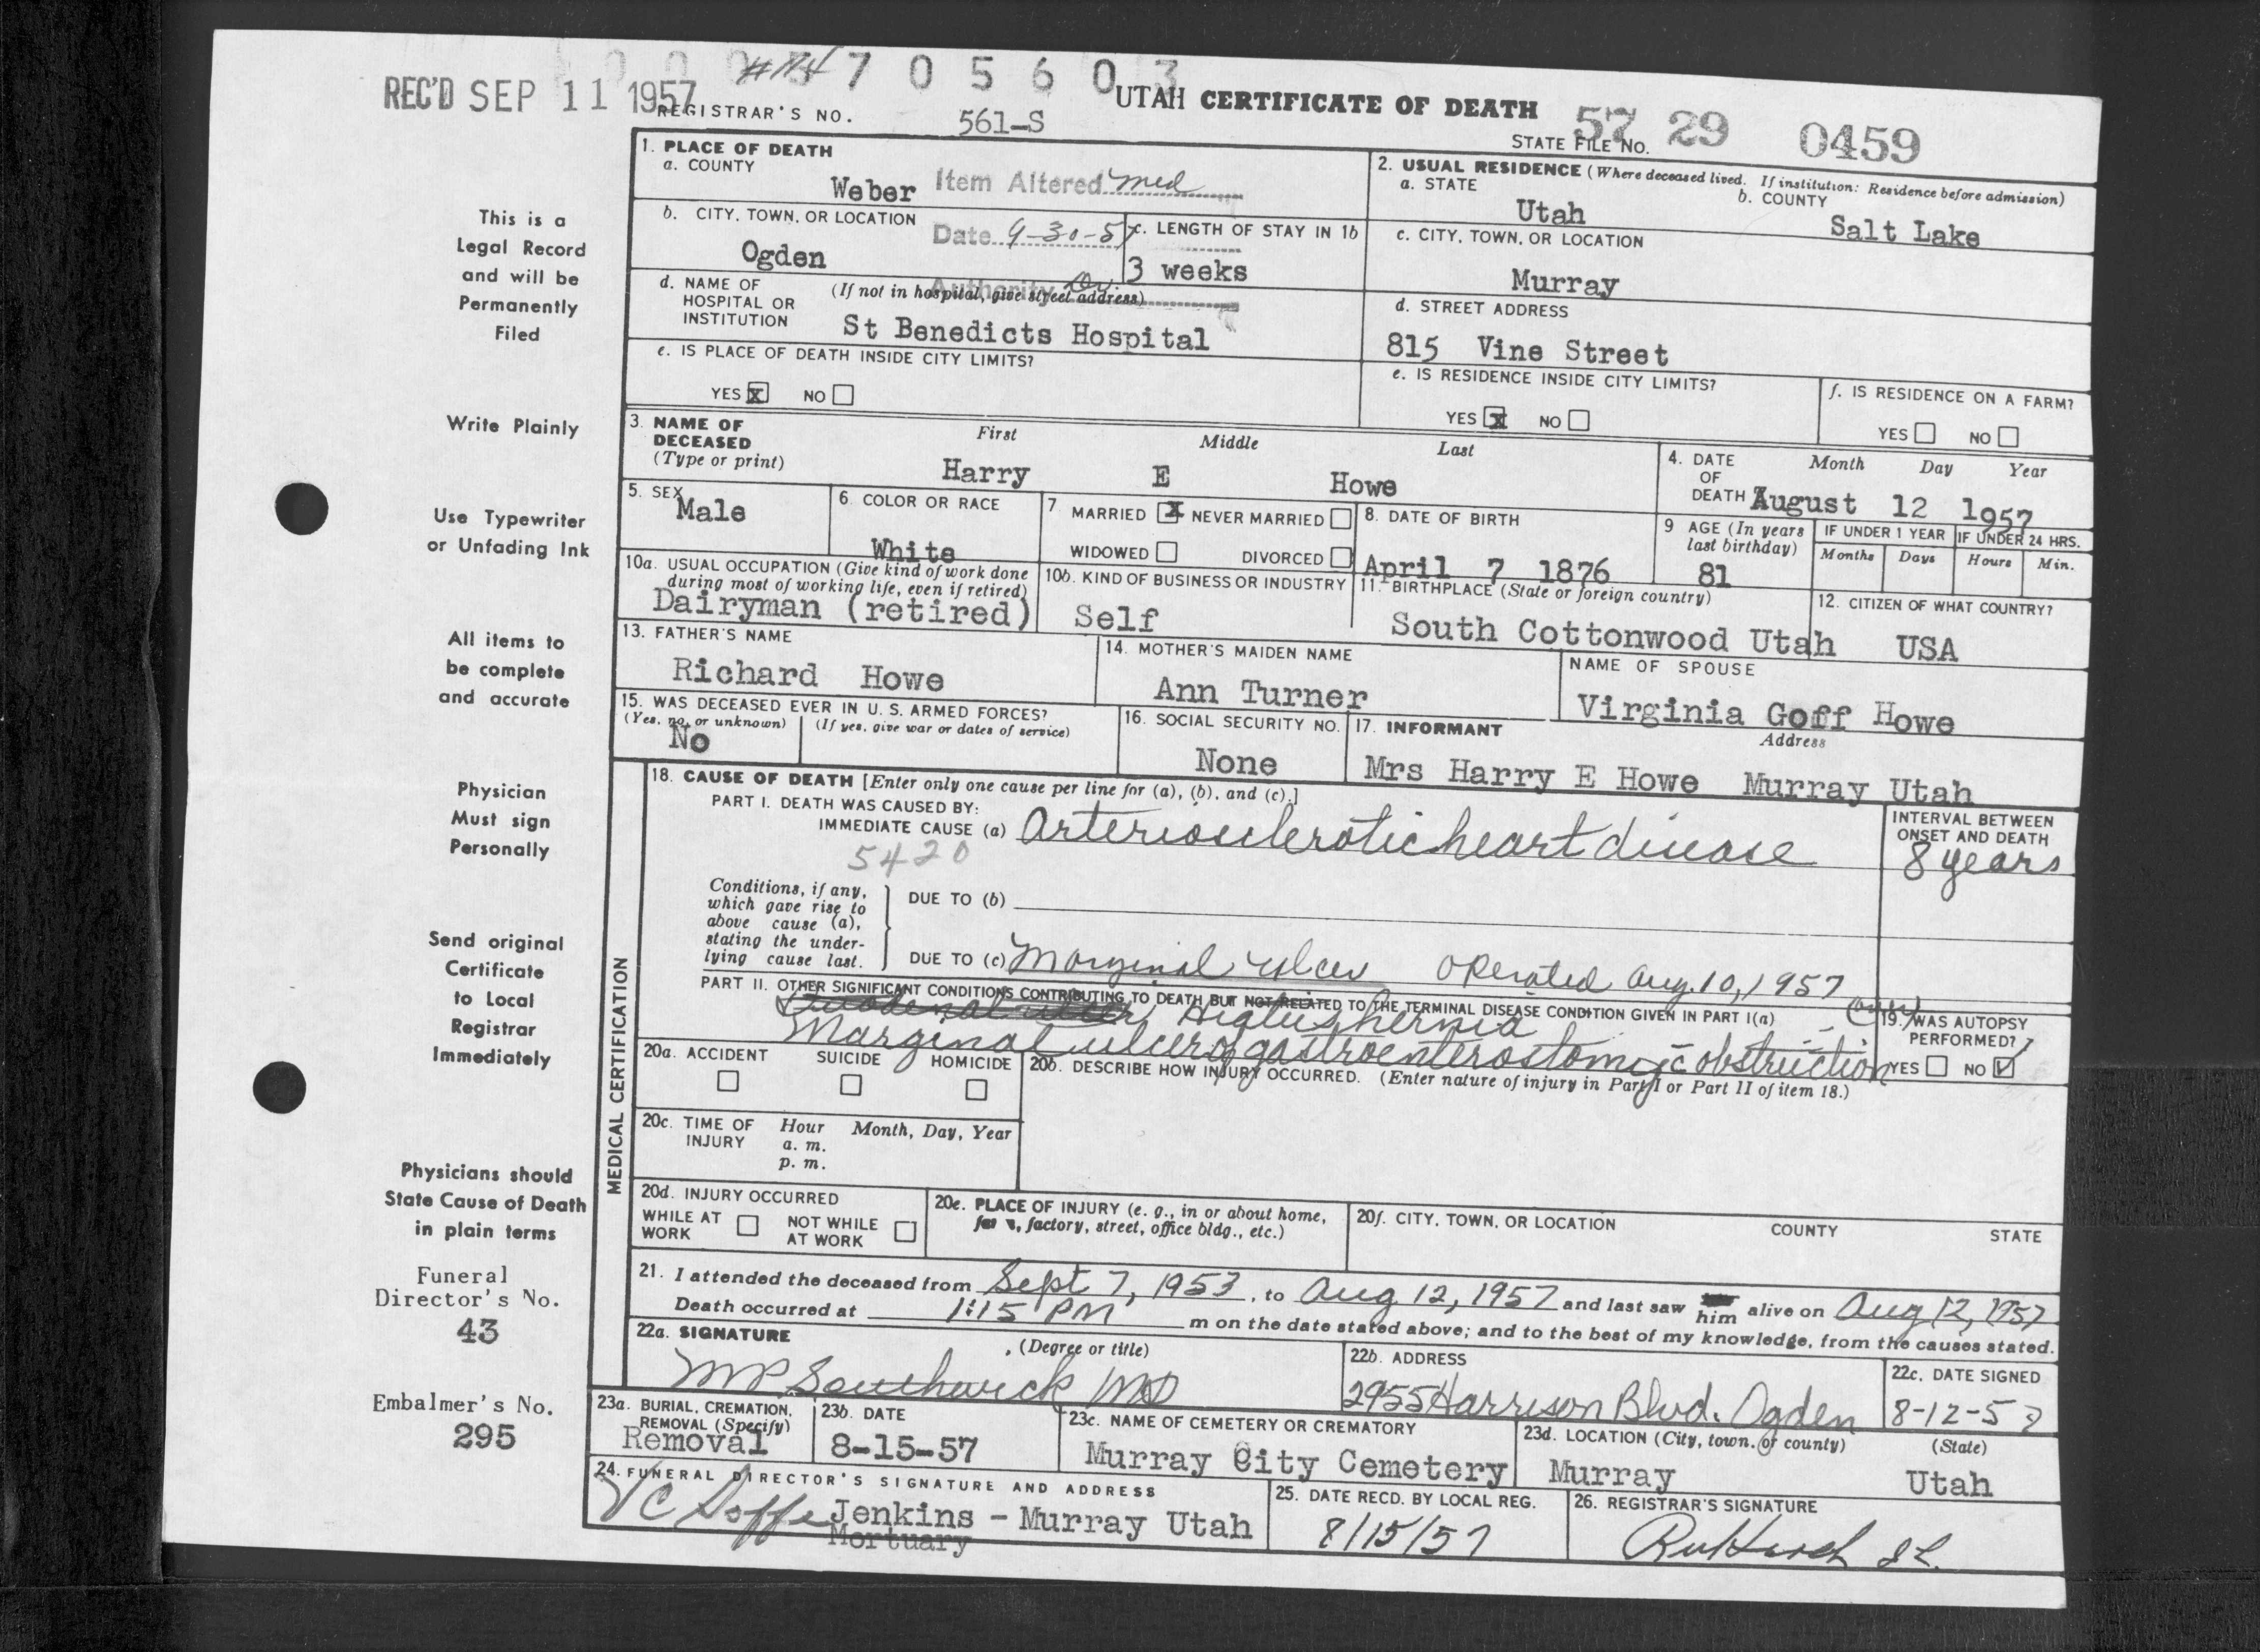 REC'D SEP 11 1957
7 0 5 6 0 3
UTAH CERTIFICATE OF DEATH
REGISTRAR'S NO. 561-S
STATE FILE NO. 57 29 0459
This is a
Legal Record
and will be
Permanently
Filed
Write Plainly
Use Typewriter
or Unfading Ink
All items to
be complete
and accurate
Physician
Must sign
Personally
Send original
Certificate
to Local
Registrar
Immediately
Physicians should
State Cause of Death
in plain terms
Funeral
Director's No.
43
Embalmer's No.
295
1. PLACE OF DEATH
a. COUNTY
Weber
Item Altered med
Date 9-30-57
Authority Dr
2. USUAL RESIDENCE (Where deceased lived. If institution: Residence before admission)
a. STATE
Utah
b. COUNTY
Salt Lake
b. CITY, TOWN, OR LOCATION
Ogden
c. LENGTH OF STAY IN 1b
3 weeks
c. CITY, TOWN, OR LOCATION
Murray
d. NAME OF HOSPITAL OR INSTITUTION
(If not in hospital, give street address)
St Benedicts Hospital
d. STREET ADDRESS
815 Vine Street
e. IS PLACE OF DEATH INSIDE CITY LIMITS?
YES X NO
e. IS RESIDENCE INSIDE CITY LIMITS?
YES X NO
f. IS RESIDENCE ON A FARM?
YES NO
3. NAME OF DECEASED
(Type or print)
First Middle Last
Harry E Howe
4. DATE OF DEATH
Month Day Year
August 12 1957
5. SEX
Male
6. COLOR OR RACE
White
7 MARRIED X NEVER MARRIED
WIDOWED DIVORCED
8. DATE OF BIRTH
April 7 1876
9 AGE (In years last birthday)
81
IF UNDER 1 YEAR
Months Days
IF UNDER 24 HRS.
Hours Min.
10a. USUAL OCCUPATION (Give kind of work done during most of working life, even if retired)
Dairyman (retired)
10b. KIND OF BUSINESS OR INDUSTRY
Self
11. BIRTHPLACE (State or foreign country)
South Cottonwood Utah
12. CITIZEN OF WHAT COUNTRY?
USA
13. FATHER'S NAME
Richard Howe
14. MOTHER'S MAIDEN NAME
Ann Turner
NAME OF SPOUSE
Virginia Goff Howe
15. WAS DECEASED EVER IN U. S. ARMED FORCES?
(Yes, no, or unknown) (If yes, give war or dates of service)
No
16. SOCIAL SECURITY NO.
None
17. INFORMANT
Address
Mrs Harry E Howe Murray Utah
MEDICAL CERTIFICATION
18. CAUSE OF DEATH [Enter only one cause per line for (a), (b), and (c).]
PART I. DEATH WAS CAUSED BY:
IMMEDIATE CAUSE (a) Arteriosclerotic heart disease
5420
INTERVAL BETWEEN ONSET AND DEATH
8 years
Conditions, if any, which gave rise to above cause (a), stating the underlying cause last.
DUE TO (b)
DUE TO (c) Marginal ulcer operated Aug. 10, 1957
PART II. OTHER SIGNIFICANT CONDITIONS CONTRIBUTING TO DEATH BUT NOT RELATED TO THE TERMINAL DISEASE CONDITION GIVEN IN PART I(a)
Duodenal ulcer, Hiatus hernia
Marginal ulcer of gastroenterostomy c̄ obstruction
19. WAS AUTOPSY PERFORMED?
YES NO ✓
20a. ACCIDENT SUICIDE HOMICIDE
20b. DESCRIBE HOW INJURY OCCURRED. (Enter nature of injury in Part I or Part II of item 18.)
20c. TIME OF INJURY
Hour Month, Day, Year
a. m.
p. m.
20d. INJURY OCCURRED
WHILE AT WORK NOT WHILE AT WORK
20e. PLACE OF INJURY (e. g., in or about home, farm, factory, street, office bldg., etc.)
20f. CITY, TOWN, OR LOCATION COUNTY STATE
21. I attended the deceased from Sept 7, 1953, to Aug 12, 1957 and last saw him alive on Aug 12, 1957
Death occurred at 1:15 PM m on the date stated above; and to the best of my knowledge, from the causes stated.
22a. SIGNATURE (Degree or title)
MP Southwick MD
22b. ADDRESS
2955 Harrison Blvd. Ogden
22c. DATE SIGNED
8-12-57
23a. BURIAL, CREMATION, REMOVAL (Specify)
Removal
23b. DATE
8-15-57
23c. NAME OF CEMETERY OR CREMATORY
Murray City Cemetery
23d. LOCATION (City, town, or county) (State)
Murray Utah
24. FUNERAL DIRECTOR'S SIGNATURE AND ADDRESS
Jenkins - Murray Utah
Mortuary
25. DATE RECD. BY LOCAL REG.
8/15/57
26. REGISTRAR'S SIGNATURE